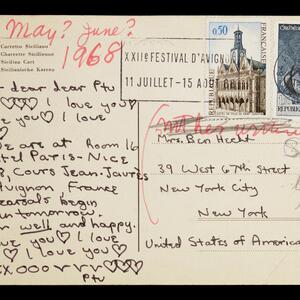 May? June?
1968
Carretto Siciliano
Charrette Sicilienne
Sicilian Cart
Sizilianische Karren
XXIIe FESTIVAL D'AVIGNON
11 JUILLET - 15 AOUT
0,50
FRANÇAISE
dear dear Ptu
I love you
I love
are at Room 16
Hotel Paris-Nice
Cours Jean-Jaurès
Avignon, France
rehearsals begin
tomorrow.
well and happy.
love you I love
I love you
XOOO
Ptu
Not her writing
Mrs. Ben Hecht
39 West 67th Street
New York City
New York
United States of America